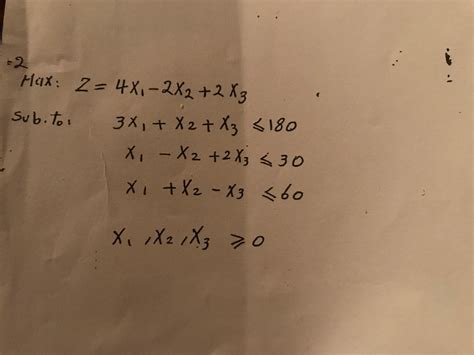 =2
Max: Z = 4X₁ - 2X₂ + 2X₃
Sub.to: 3X₁ + X₂ + X₃ ≤ 180
X₁ - X₂ + 2X₃ ≤ 30
X₁ + X₂ - X₃ ≤ 60
X₁ , X₂ , X₃ ≥ 0